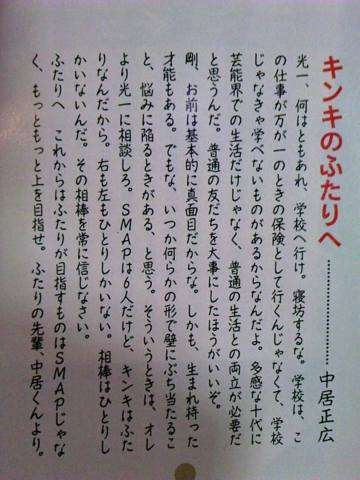 キンキのふたりへ……………………中居正広
光一、何はともあれ、学校へ行け。寝坊するな。学校は、こ
の仕事が万が一のときの保険として行くんじゃなくて、学校
じゃなきゃ学べないものがあるからなんだよ。多感な十代に
芸能界での生活だけじゃなく、普通の生活との両立が必要だ
と思うんだ。普通の友だちを大事にしたほうがいいぞ。
剛、お前は基本的に真面目だからな。しかも、生まれ持った
才能もある。でもな、いつか何らかの形で壁にぶち当たるこ
と、悩みに陥るときがある、と思う。そういうときは、オレ
より光一に相談しろ。SMAPは6人だけど、キンキはふた
りなんだから。右も左もひとりしかいない。相棒はひとりし
かいないんだ。その相棒を常に信じなさい。
ふたりへ　これからはふたりが目指すものはSMAPじゃな
く、もっともっと上を目指せ。ふたりの先輩、中居くんより。